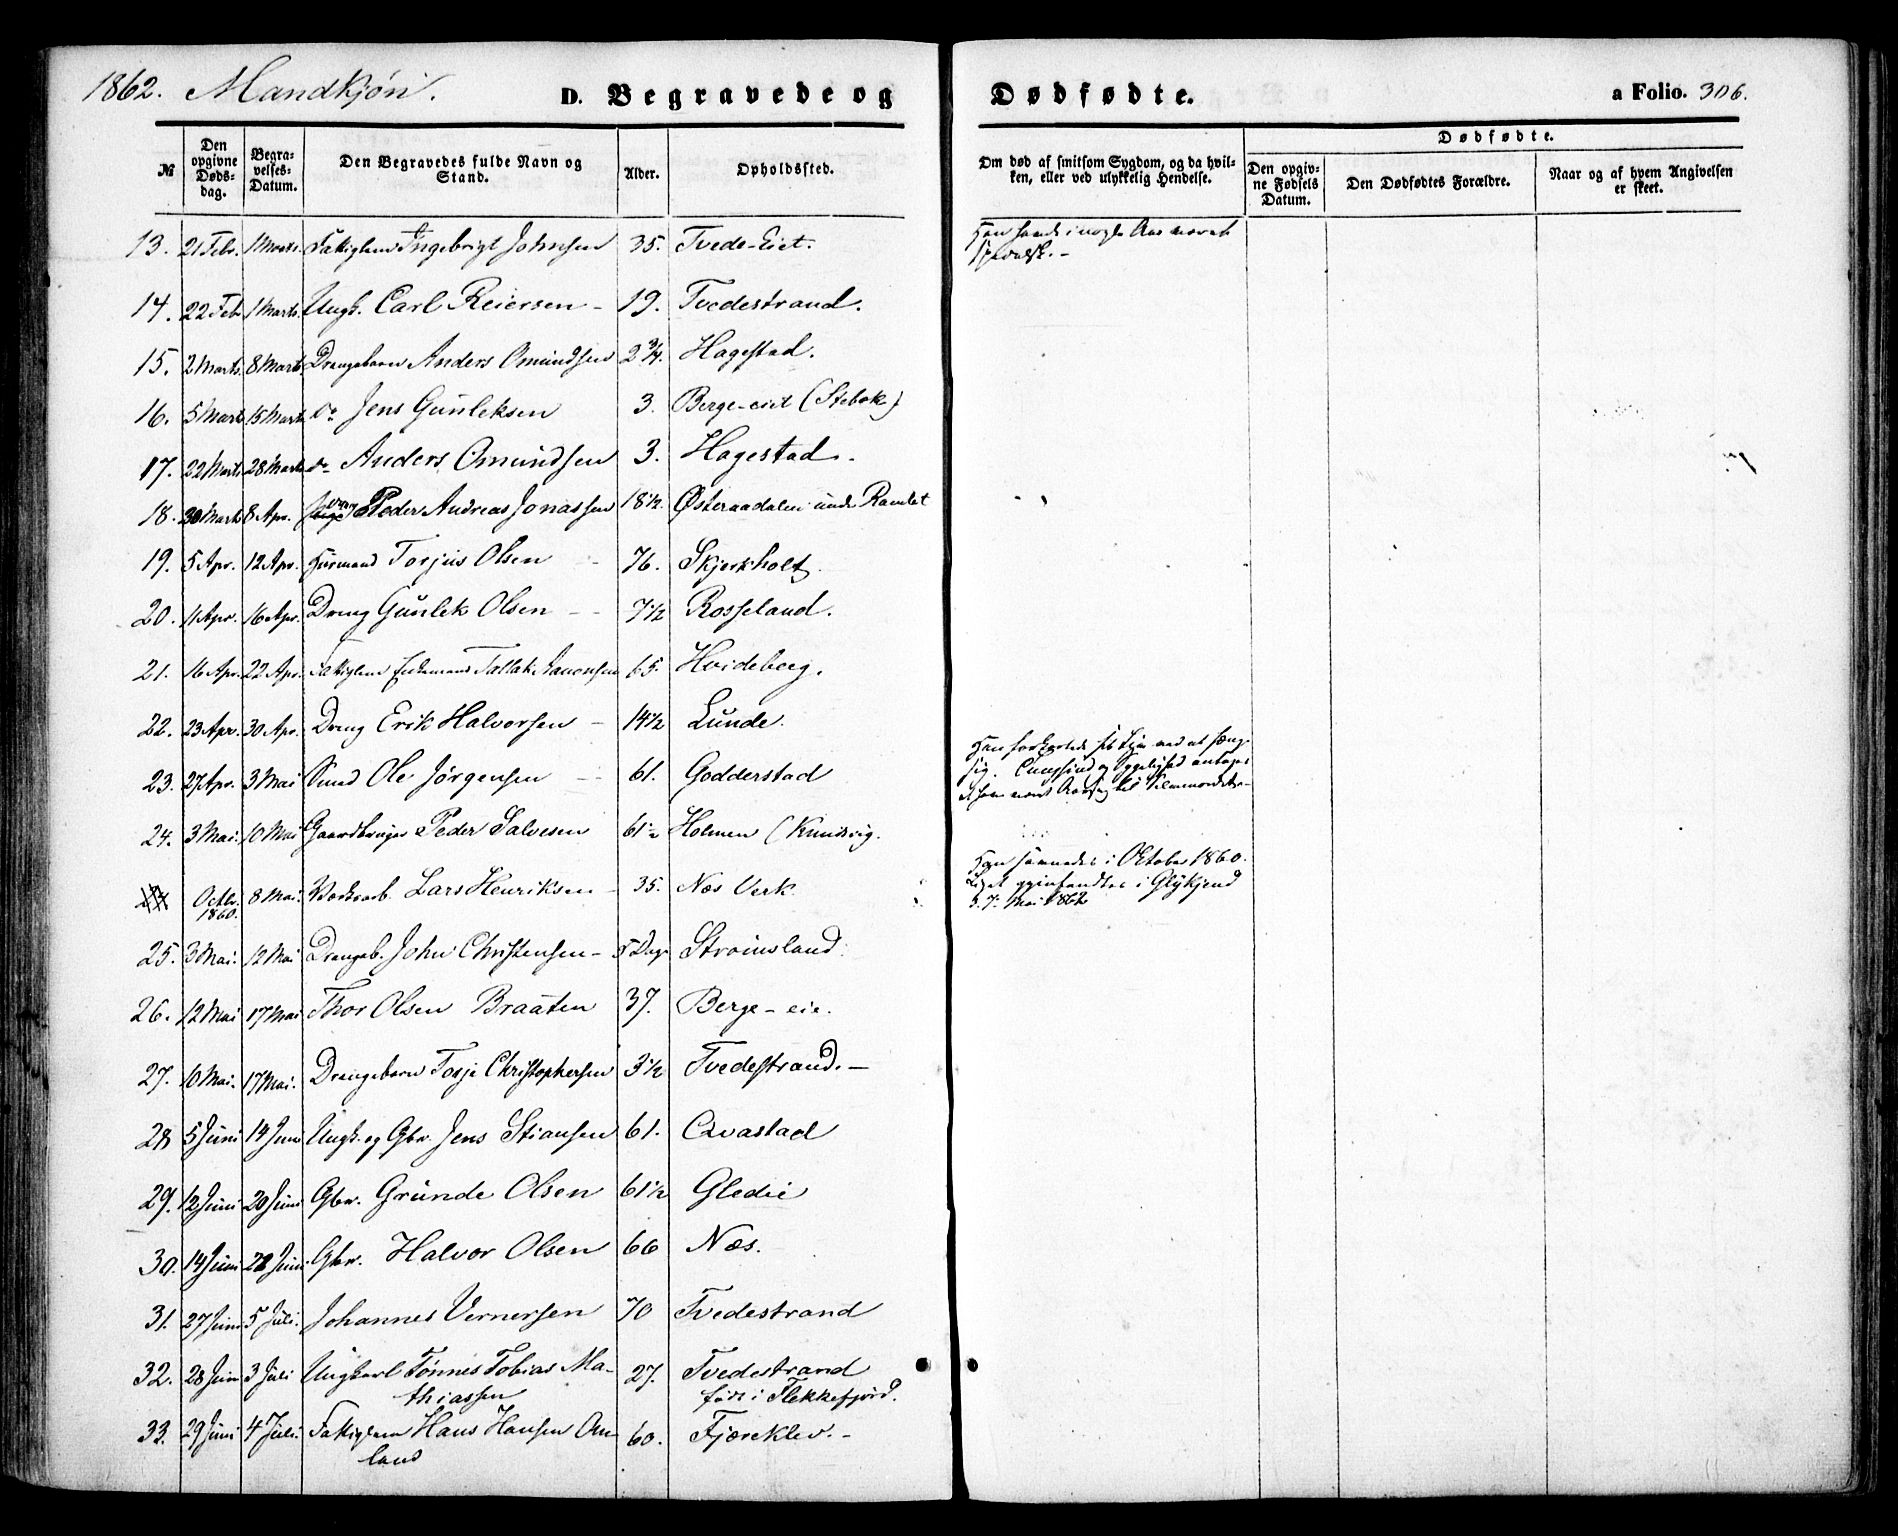 1862. Mandkjøn.
D. Begravede og Dødfødte.
a Folio. 306.
№
Den opgivne Døds-dag.
Begra-velses-Datum.
Den Begravedes fulde Navn og Stand.
Alder.
Opholdssted.
Om død af smitsom Sygdom, og da hvil-
ken, eller ved ulykkelig Hendelse.
Dødfødte.
Den opgiv-ne Fødsels Datum.
Den Dødfødtes Forældre.
Naar og af hvem Angivelsen er skeet.
13. 21 Febr. 1 Marts. Fattiglem Ingebrigt Johnsen 35. Tvede-Eiet. Han havde i nogle Aar været
spedalsk. -
14. 22 Feb 1 Marts. Ungk. Carl Reiersen - 19. Tvedestrand.
15. 2 Marts. 8 Marts. Drengebarn Anders Omundsen 2 3/4. Hagestad.
16. 5 Marts 15 Marts. do Jens Gunleksen 3. Berge-eiet (Stebok)
17. 22 Marts 28 Marts do Anders Omundsen 3. Hagestad.
18. 30 Marts 8 Apr. Peder Andreas Jonassen 18 1/2. Østeraadalen under Ramlet
19. 5 Apr. 12 Apr. Huusmand Torjus Olsen - 76. Skjerkholt.
20. 11 Apr. 16 Apr. Dreng Gunlek Olsen - - 7 1/2 Rosseland.
21. 16 Apr. 22 Apr. Fattiglem Enkemand Tallak 65. Hvideberg.
22. 23 Apr. 30 Apr. Dreng Erik Halvorsen - 14 1/2 Lunde.
23. 27 Apr. 3 Mai Smed Ole Jørgensen - 61. Godderstad
Han forkortede sit Liv ved at hænge
sig. Tungsind og Sygelighed antages
at have været Aarsag til Selvmordet. -
24. 3 Mai. 10 Mai Gaardbruger Peder Salvesen 61 1/2 Holmen (Knudsvig.
Octbr. 1860. 8 Mai. Lars Henriksen - 35. Næs Verk.
Han savnedes i Oktober 1860.
Liget gjenfandtes i
d. 7. Mai 1862
25. 3 Mai. 12 Mai Drengeb. John Christensen - 5 Dage Strømsland.
26. 12 Mai 17 Mai Thor Olsen Braaten 37. Berge-eie.
27. 10 Mai. 17 Mai. Drengebarn Torje Christophersen 3 1/2 Tvedestrand. -
28 5 Juni 14 Juni Ungk. og Gbr. Jens Stiansen 61. Qvastad
29. 12 Juni 20 Juni Gbr. Grunde Olsen 61 1/2 Gledie
30. 14 Juni 28 Juni Gbr. Halvor Olsen 66 Næs.
31. 27 Juni 5 Juli. Johannes Vernersen 70 Tvedestrand
32. 28 Juni 3 Juli Ungkarl Tønnes Tobias Ma- 27. Tvedestrand
thiassen født i Flekkefjord.
33. 29 Juni 4 Juli. Fattiglem Hans Hansen Om- 60. Fjæreklev. -
land